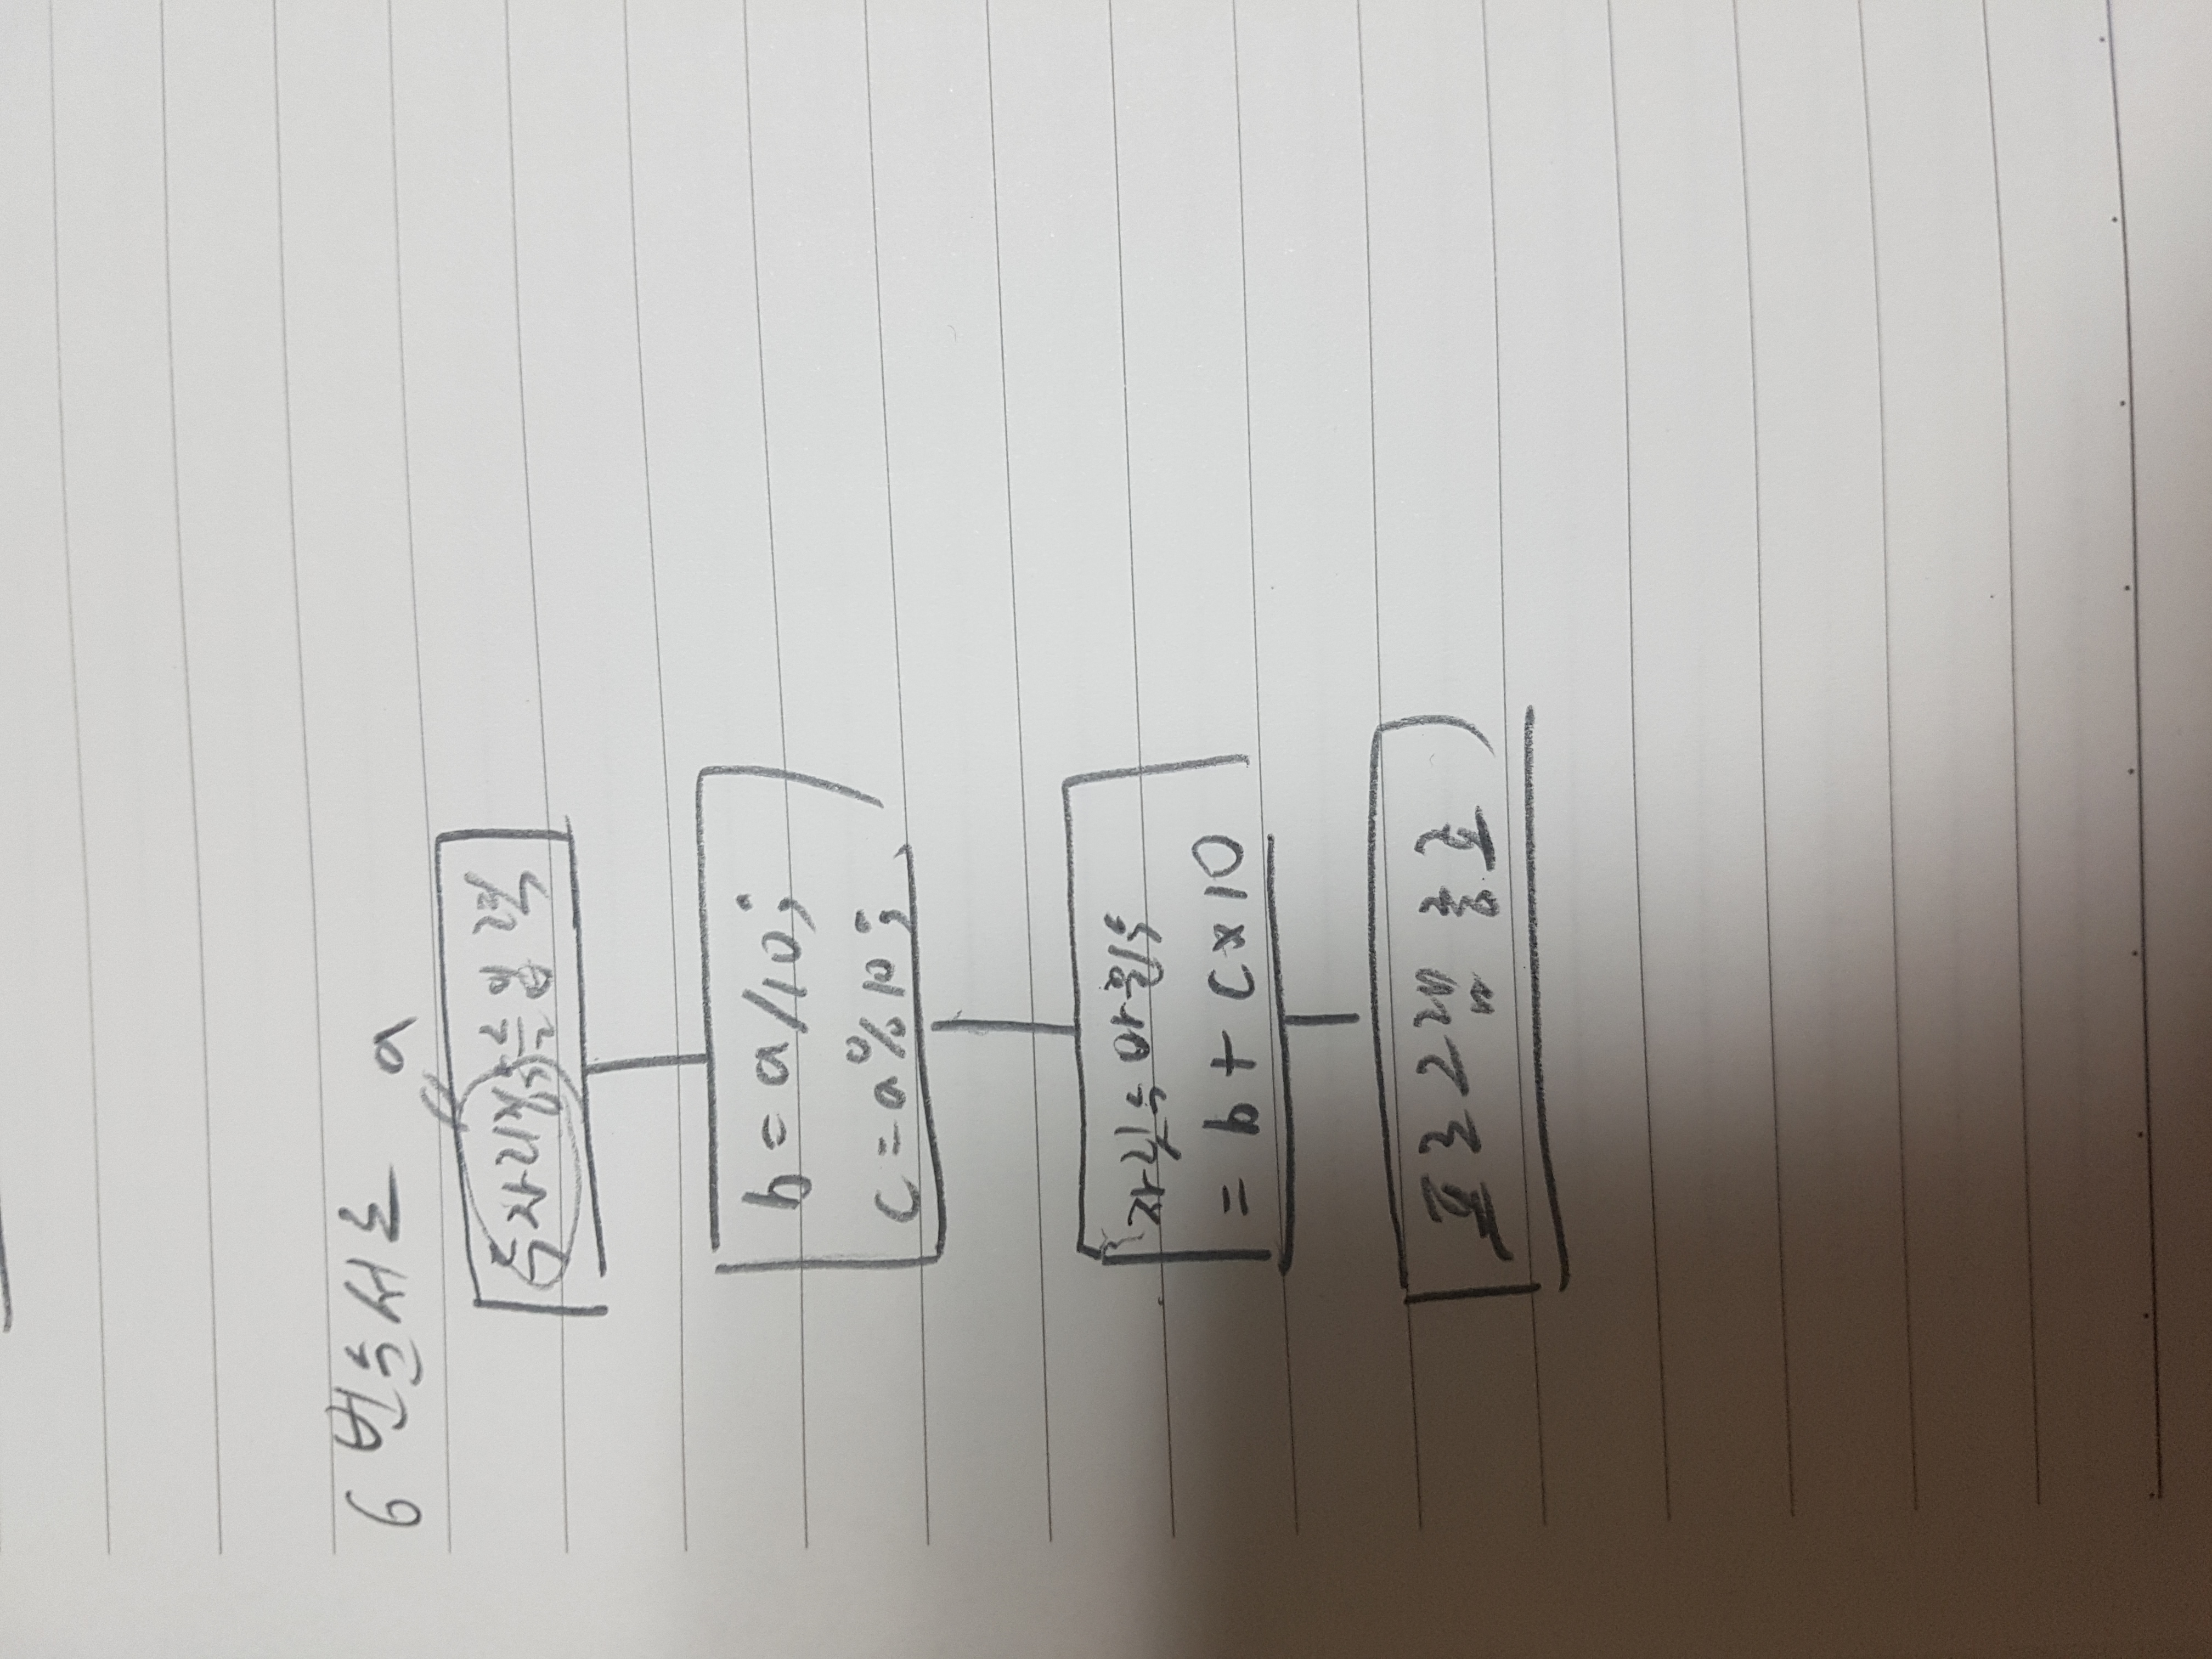 6번순서도
a
두자리정수를입력
b = a/10;
c = a%10;
자릿수 바뀐수
= b + c×10
프로그램 종료